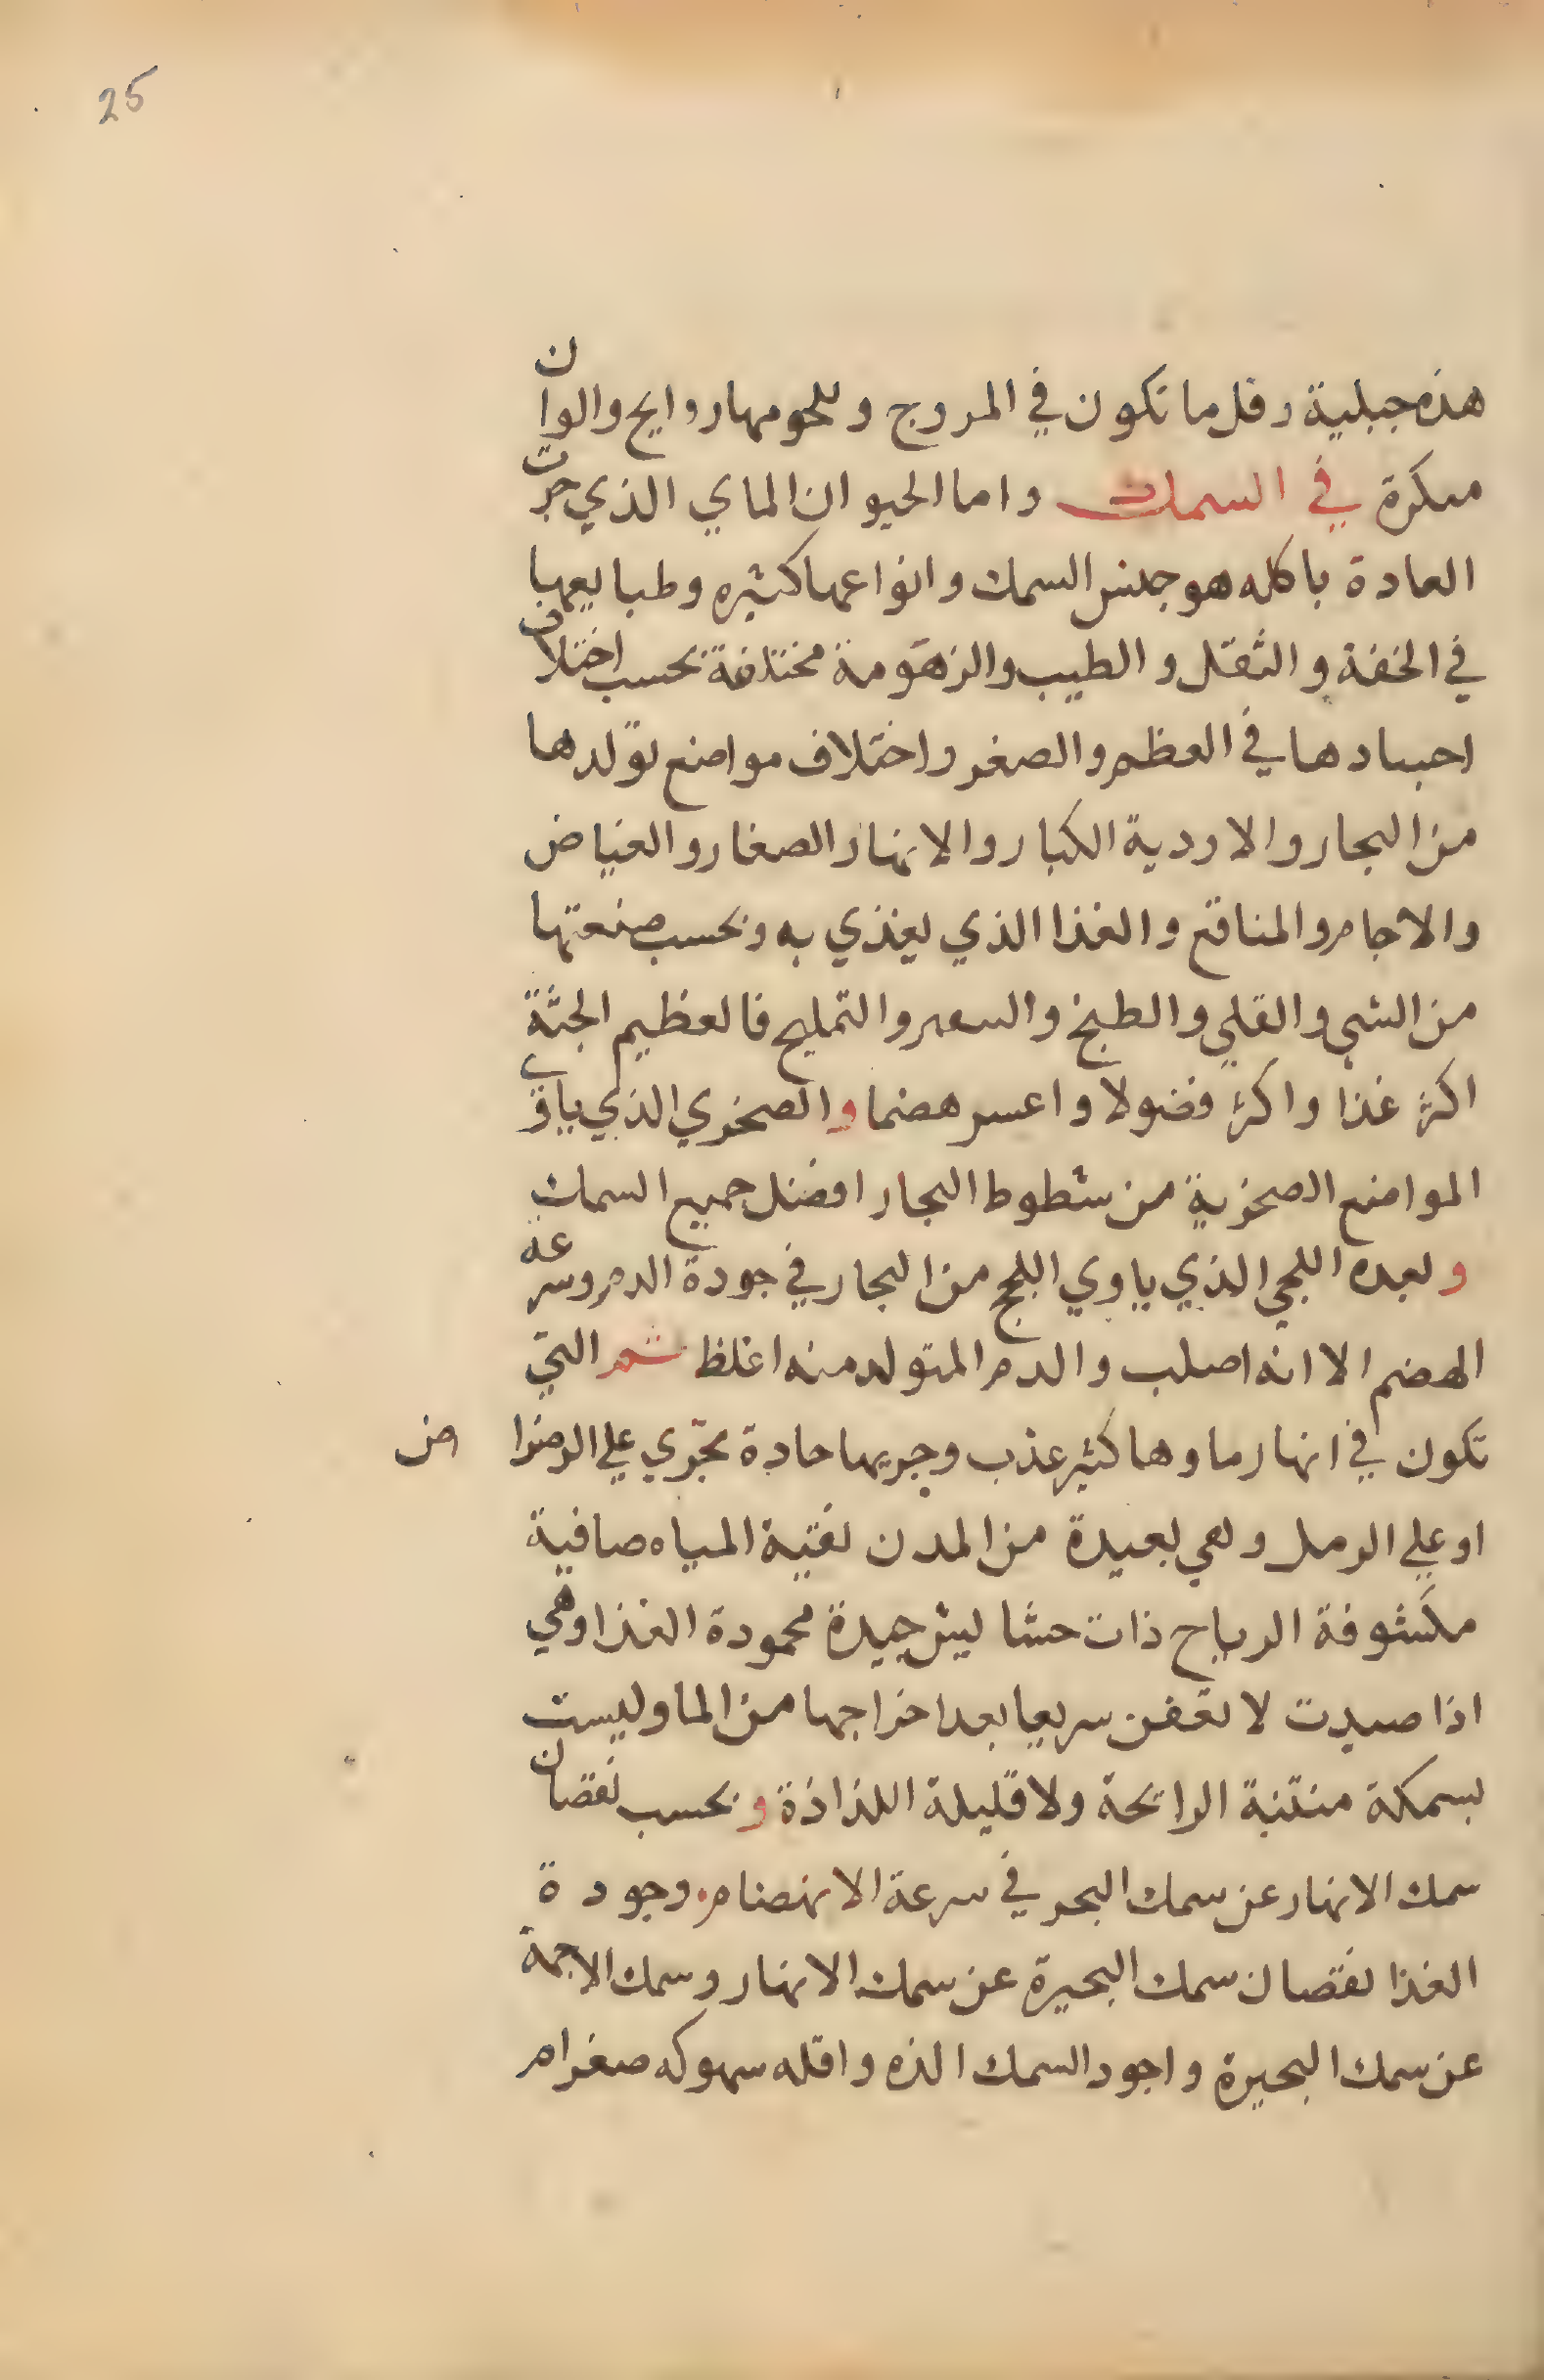 25
هذه جبلية وقل ما تكون في المروج وللحومها روايح والوان
منكرة في السمك واما الحيوان الماي الذي جرت
العادة باكله هو جنس السمك وانواعها كثيره وطبايعها
في الخفة والثقل والطيب والزهومة مختلفة بحسب اختلاف
اجسادها في العظم والصغر واختلاف مواضع تولدها
من البحار والاودية الكبار والانهار الصغار والغياض
والاجام والمناقع والغذا الذي يغذي به وبحسب صنعتها
من الشي والقلي والطبخ والتمليح فالعظيم الجثة
اكثر غذا واكثر فضولا واعسر هضما والصخري الذي ياوي
المواضع الصخرية من شطوط البحار افضل جميع السمك
وبعده اللجي الذي ياوي اللجج من البحار في جودة الدم وسرعة
الهضم الا انه اصلب والدم المتولد منه اغلظ ثم التي
تكون في انهار ماوها كثير عذب وجريها حادة تجري علي الرضراض
او علي الرمل وهي بعيدة من المدن نقية المياه صافية
مكشوفة الرياح ذات حشايش جيدة محمودة الغذا وهي
اذا صيدت لا تعفن سريعا بعد اخراجها من الما وليست
بسمكة منتنة الرايحة ولا قليلة اللذاذة وبحسب نقصان
سمك الانهار عن سمك البحر في سرعة الانهضام وجودة
الغذا نقصان سمك البحيرة عن سمك الانهار وسمك الاجمة
عن سمك البحيرة واجود السمك الذه واقله سهوكه صغرام